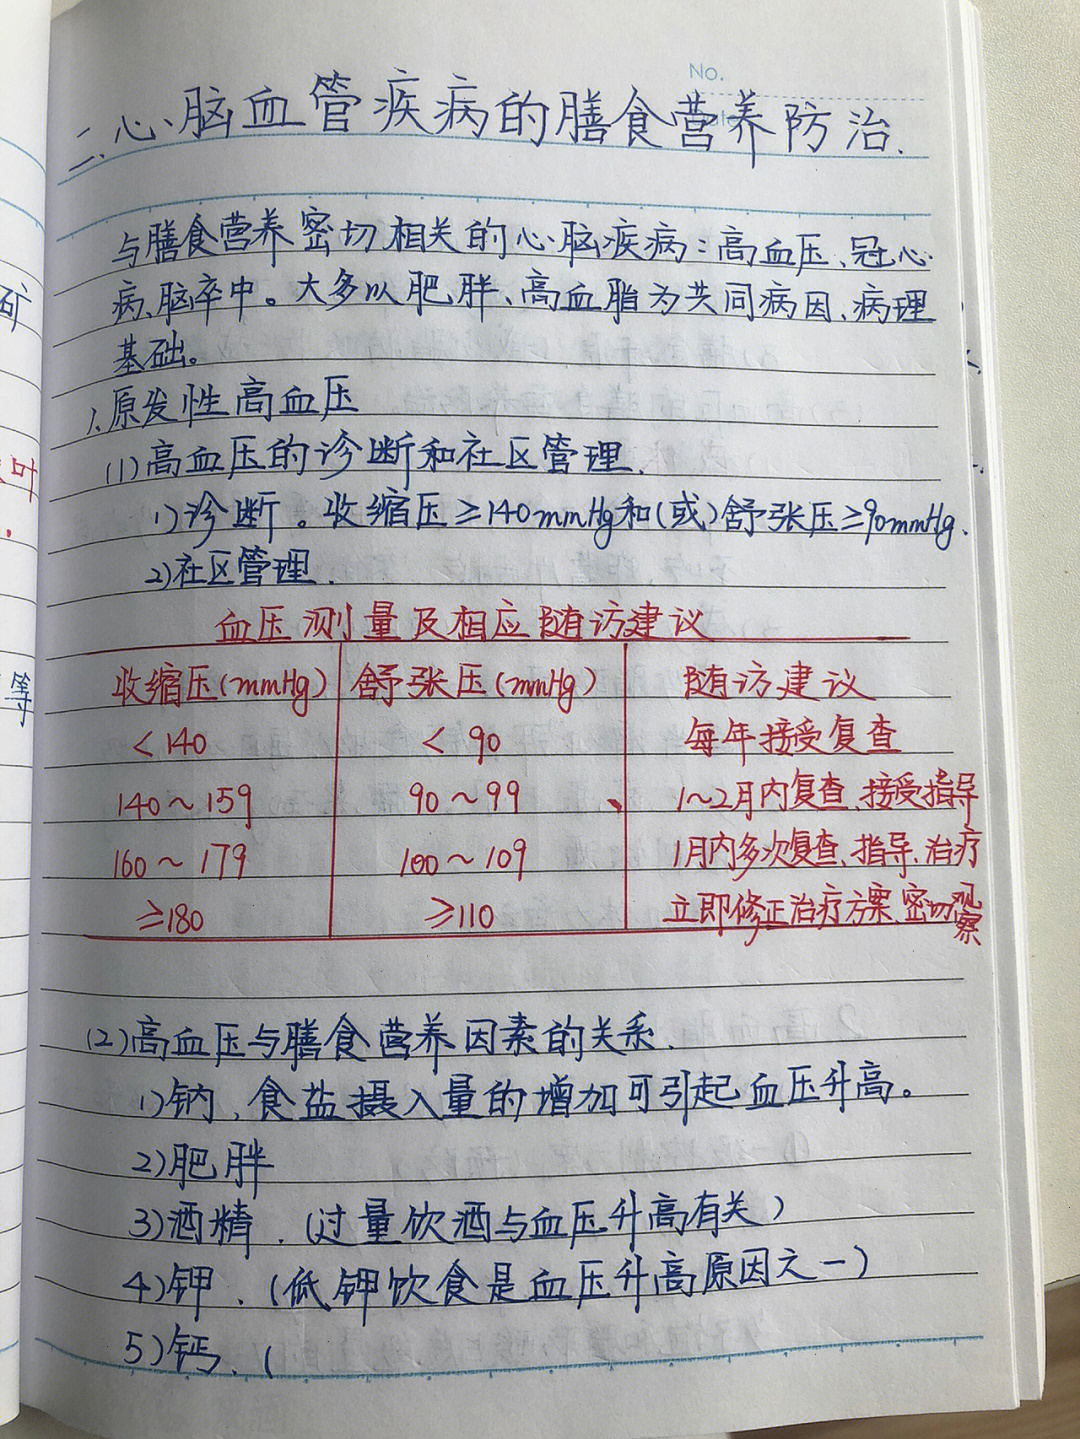 No.
二、心脑血管疾病的膳食营养防治.
与膳食营养密切相关的心脑疾病：高血压、冠心
病、脑卒中。大多以肥胖、高血脂为共同病因、病理
基础。
1、原发性高血压
(1)高血压的诊断和社区管理.
1)诊断。收缩压≥140mmHg和(或)舒张压≥90mmHg.
2)社区管理.
血压测量及相应随访建议
收缩压(mmHg) 舒张压(mmHg) 随访建议
<140 <90 每年接受复查
140～159 90～99 1～2月内复查、接受指导
160～179 100～109 1月内多次复查、指导、治疗
≥180 ≥110 立即修正治疗方案、密切观察
(2)高血压与膳食营养因素的关系.
1)钠、食盐摄入量的增加可引起血压升高。
2)肥胖
3)酒精.(过量饮酒与血压升高有关)
4)钾.(低钾饮食是血压升高原因之一)
5)钙、(
矿
叶
等